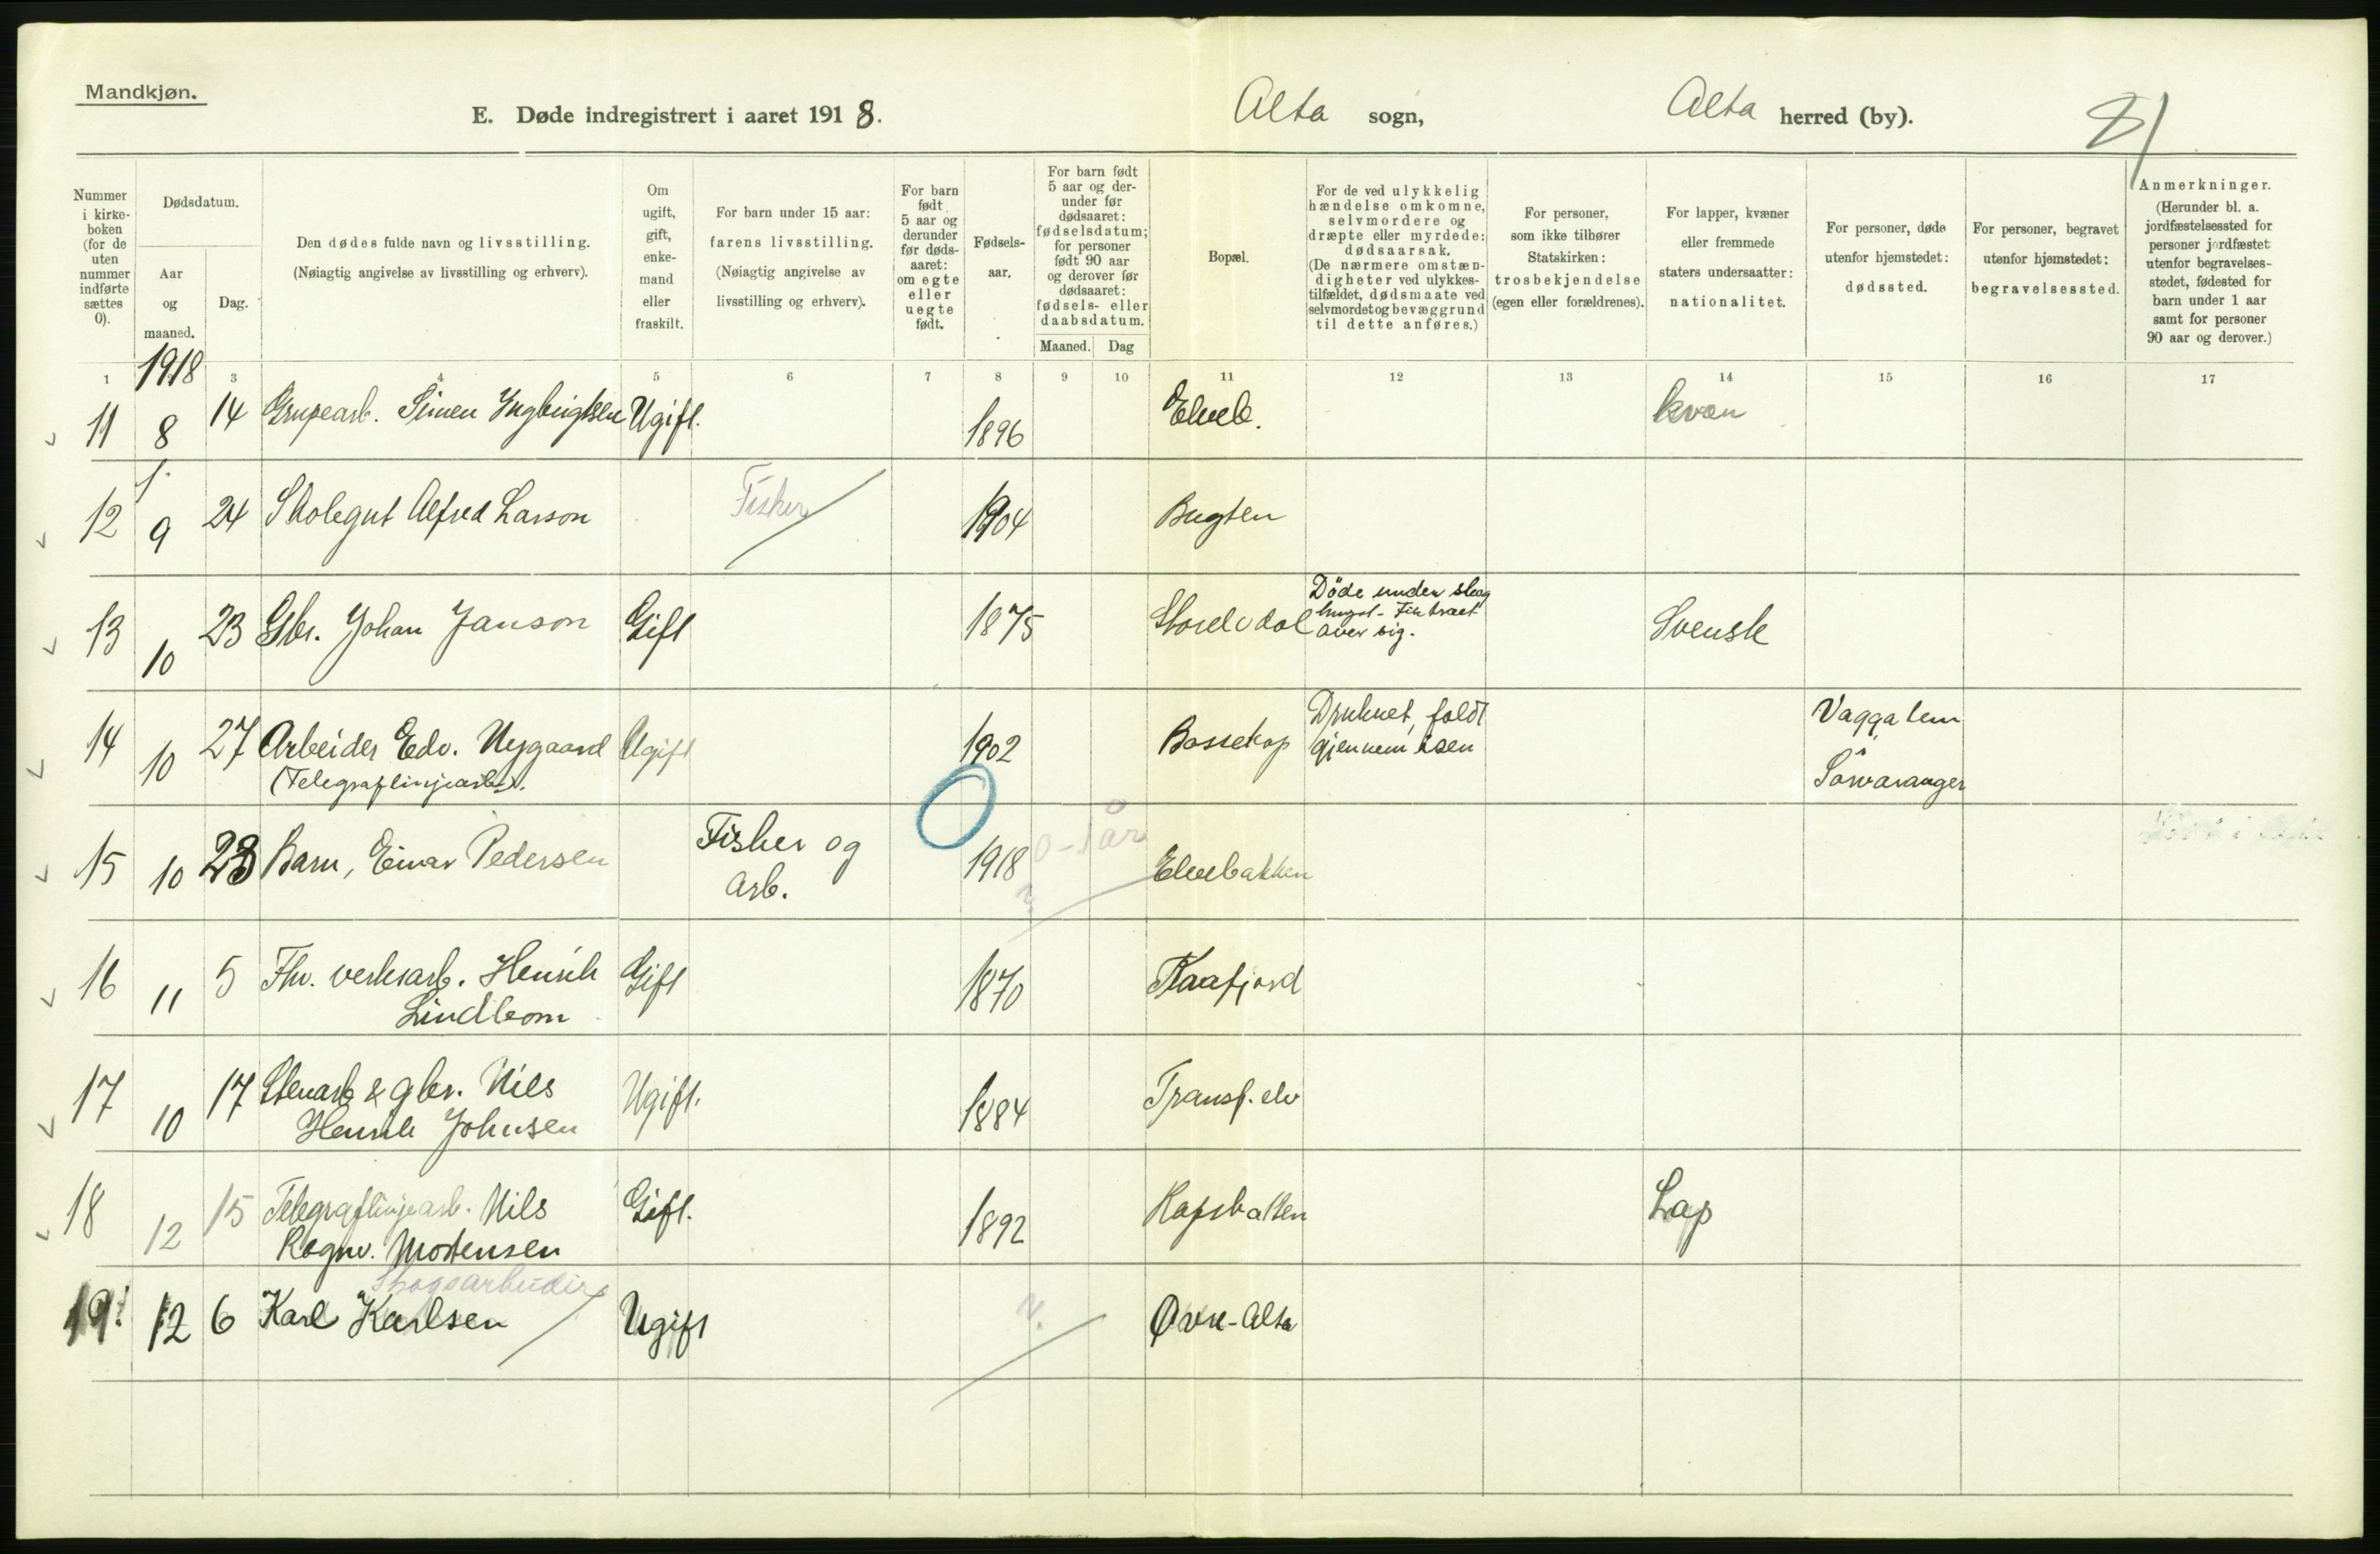 Mandkjøn.
E. Døde indregistrert i aaret 1918.
Alta sogn,
Alta herred (by).
Nummer i kirke-boken (for de uten nummer indførte sættes 0).
Dødsdatum.
Aar og maaned.
Dag.
Den dødes fulde navn og livsstilling.
(Nøiagtig angivelse av livsstilling og erhverv).
Om ugift, gift, enke-mand eller fraskilt.
For barn under 15 aar: farens livsstilling.
(Nøiagtig angivelse av livsstilling og erhverv).
For barn født 5 aar og derunder før døds-aaret: om egte eller uegte født.
Fødsels-aar.
For barn født 5 aar og der-under før dødsaaret: fødselsdatum; for personer født 90 aar og derover før dødsaaret: fødsels- eller daabsdatum.
Maaned. Dag
Bopæl.
For de ved ulykkelig hændelse omkomne, selvmordere og dræpte eller myrdede: dødsaarsak.
(De nærmere omstæn-digheter ved ulykkes-tilfældet, dødsmaate ved selvmordet og bevæggrund til dette anføres.)
For personer, som ikke tilhører Statskirken: trosbekjendelse (egen eller forældrenes).
For lapper, kvæner eller fremmede staters undersaatter: nationalitet.
For personer, døde utenfor hjemstedet: dødssted.
For personer, begravet utenfor hjemstedet: begravelsessted.
Anmerkninger.
(Herunder bl. a. jordfæstelsessted for personer jordfæstet utenfor begravelses-stedet, fødested for barn under 1 aar samt for personer 90 aar og derover.)
1 3 4 5 6 7 8 9 10 11 12 13 14 15 16 17
1918
11 8 14 Grupearb. Simen Yngbrigtsen Ugift. 1896 Elveb. kvæn
12 9 24 Skolegut Alfred Larson Fisker 1904 Bugten
13 10 23 Gbr. Johan Janson Gift 1875 Storelvdal Døde under skog
hugst - Fik træet
over sig. Svensk
14 10 27 Arbeider Edv. Nygaard Ugift 1902 Bossekop Druknet, faldt
gjennem isen Vaggatem
(Telegraflinjearb.). Sørvaranger
15 10 28 Barn, Einar Pedersen Fisker og
Arb. 1918 0-1 år Elvebakken
16 11 5 Fhv. verksarb. Henrik
Lindbom Gift 1870 Kaafjord
17 10 17 Stenarb & gbr. Nils
Henrik Johnsen Ugift. 1884 Transf. elv
18 12 15 Telegraflinjearb. Nils
Ragnv. Mortensen Gift. 1892 Lap
19. 12 6 Karl Karlsen Skogsarbeider Ugift Øvre-Alta